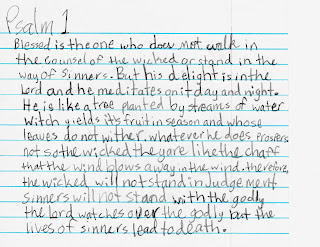 Psalm 1
Blessed is the one who does not walk in
the counsel of the wicked or stand in the
way of sinners. But his delight is in the
lord and he meditates on it day and night.
He is like a tree planted by streams of water
witch yields it's fruit in season and whose
leaves do not wither. whatever he does prospers
not so the wicked the yare like the chaff
that the wind blows away in the wind. therefore,
the wicked will not stand in Judgement
sinners will not stand with the godly
the lord watches over the godly but the
lives of sinners lead to death.